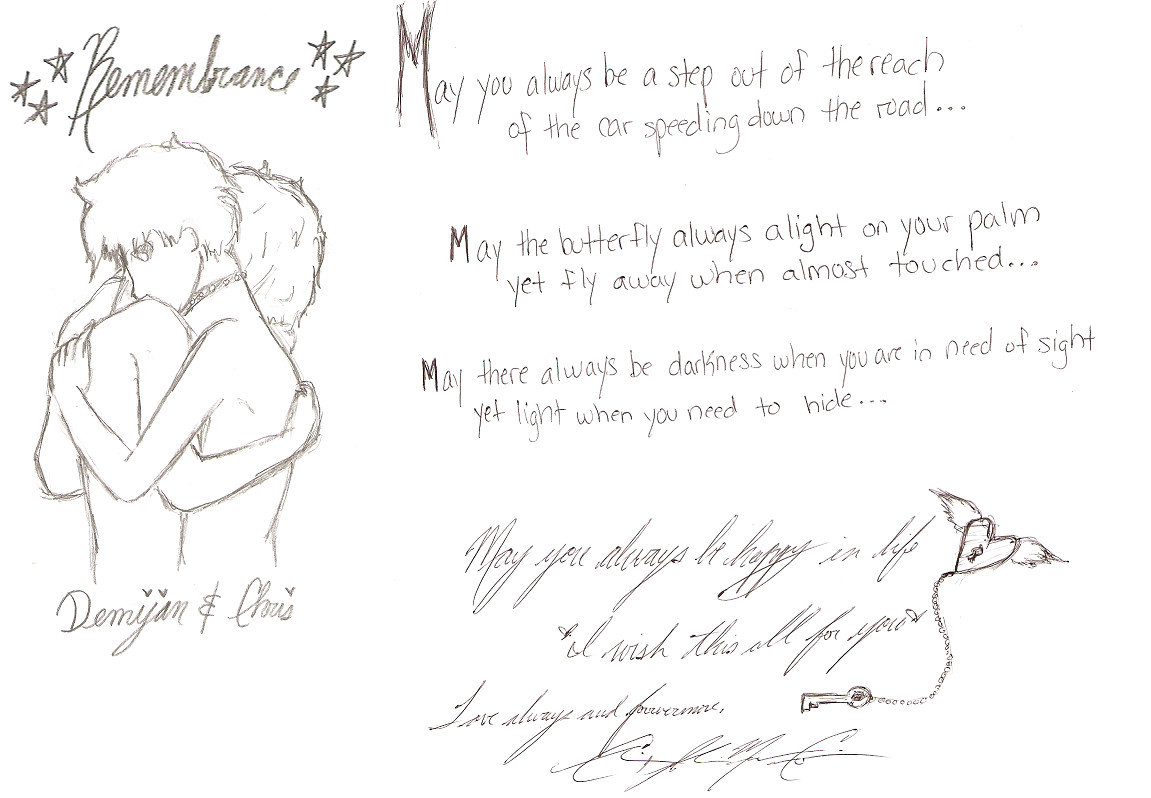 Remembrance
Demijan & Chris
May you always be a step out of the reach
of the car speeding down the road...
May the butterfly always alight on your palm
yet fly away when almost touched...
May there always be darkness when you are in need of sight
yet light when you need to hide...
May you always be happy in life
I wish this all for you
Love always and forevermore,